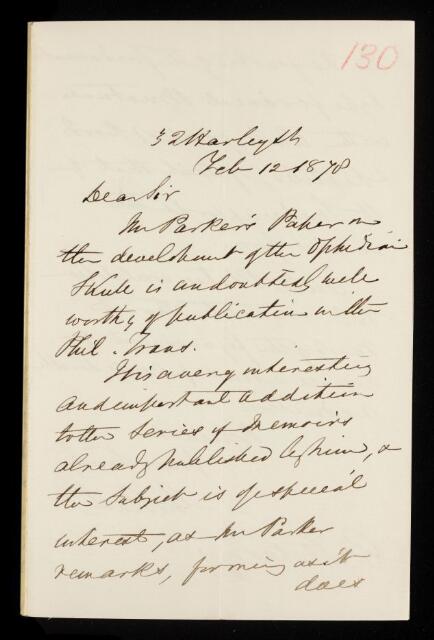 130
32 Harley St
Feb 12 1878
Dear Sir
Mr Parker's Paper on
the development of the Ophidian
Skull is undoubtedly well
worthy of publication in the
Phil. Trans.
It is a very interesting
and important addition
to the Series of Memoirs
already published by him, &
the Subject is of especial
interest, as Mr Parker
remarks, forming as it
does